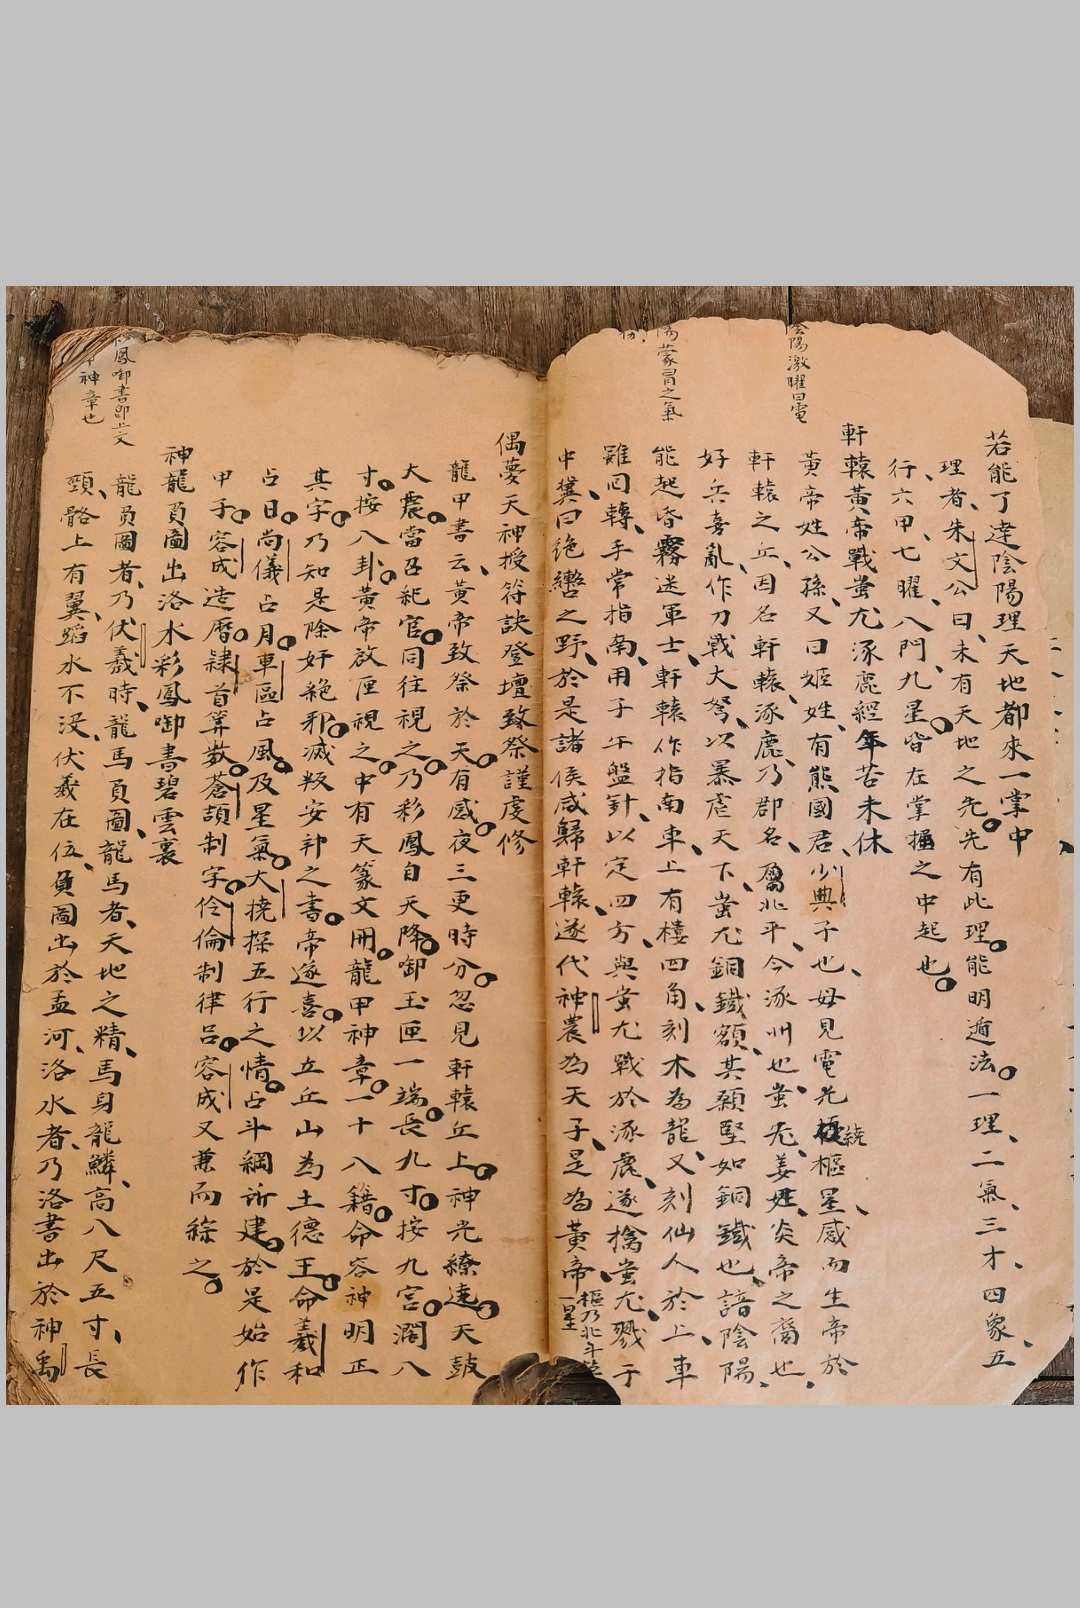 若能了達陰陽理天地都來一掌中
理者朱文公曰未有天地之先先有此理能明遁法一理二氣三才四象五
行六甲七曜八門九星皆在掌之中起也
陰陽激曜曰電
軒轅黃帝戰蚩尤涿鹿經年苦未休
黃帝姓公孫又曰姬姓有熊國君少典子也母見電光繞樞星感而生帝於
軒轅之丘因名軒轅涿鹿乃郡名屬北平今涿州也蚩尤姜姓炎帝之裔也
好兵喜亂作刀戟大弩以暴虐天下蚩尤銅鐵額其額堅如銅鐵也諳陰陽
陽蒙冒之氣
能起昏霧迷軍士軒轅作指南車上有樓四角刻木為龍又刻仙人於上車
雖回轉手常指南用子午盤針以定四方與蚩尤戰於涿鹿遂擒蚩尤戮于
中冀曰絶轡之野於是諸侯咸歸軒轅遂代神農為天子是為黃帝
樞乃北斗
一星
偶夢天神授符訣登壇致祭謹虔修
龍甲書云黃帝致祭於天有感夜三更時分忽見軒轅丘上神光繚遶天鼓
大震當召祀官同往視之乃彩鳳自天降啣玉匣一端長九寸按九宮濶八
寸按八卦黃帝啟匣視之中有天篆文冊龍甲神章一十八籍命容神明正
其字乃知是除奸絶邪滅叛安邦之書帝遂喜以立丘山為土德王命羲和
占日尚儀占月車區占風及星氣大撓探五行之情占斗綱所建於是始作
甲子容成造曆隷首算數蒼頡制字伶倫制律呂容成又兼而綜之
神龍負圖出洛水彩鳳啣書碧雲裏
鳳啣書即上文
神章也
龍負圖者乃伏羲時龍馬負圖龍馬者天地之精馬身龍鱗高八尺五寸長
頸骼上有翼蹈水不没伏羲在位負圖出於孟河洛水者乃洛書出於神禹